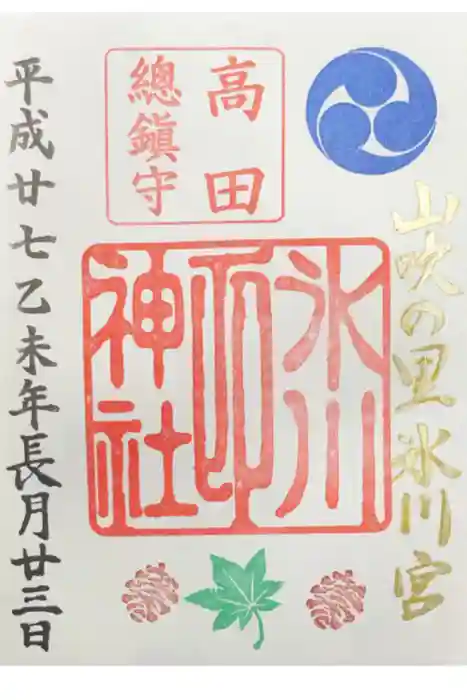 山吹の里氷川宮
高田
總鎮守
氷川
神社
印
平成廿七乙未年長月廿三日